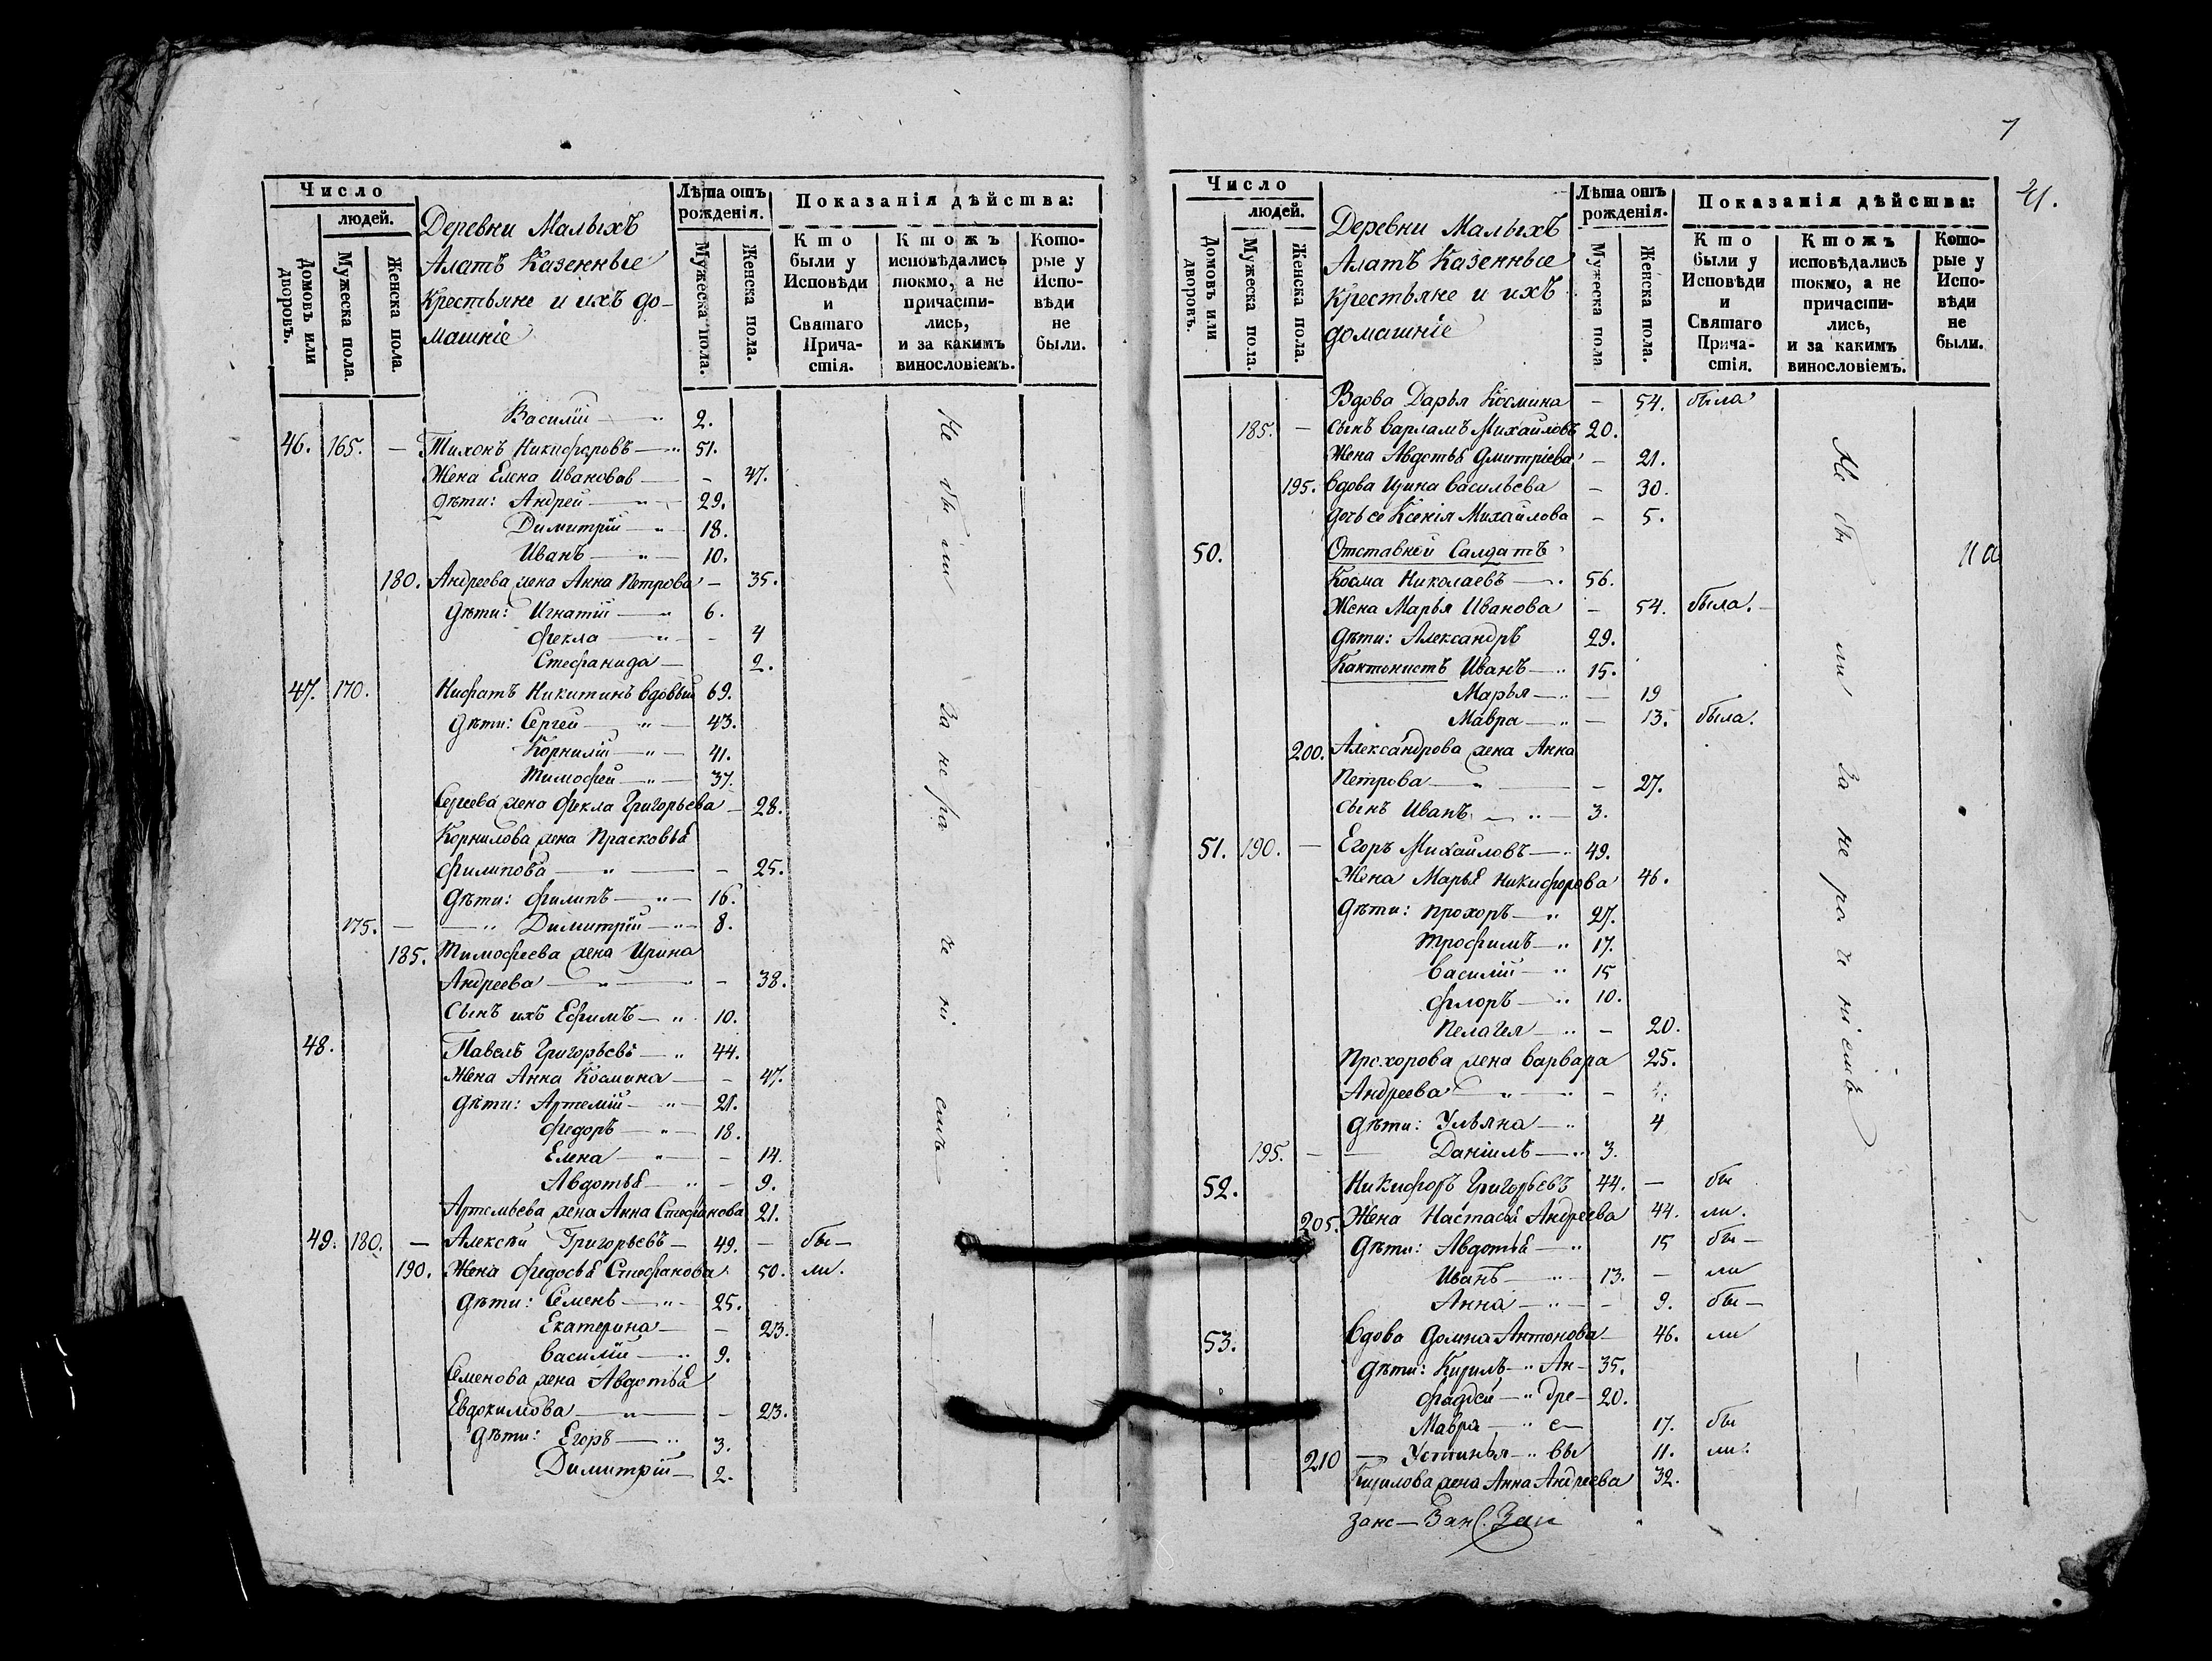 Число
людей.
Домовъ или дворовъ.
Мужеска пола.
Женска пола.
Деревни Малыхъ
Алатъ Казенные
Крестьяне и ихъ до-
машніе
Лѣта отъ рожденія.
Мужеска пола.
Женска пола.
Показанія дѣйства:
Кто были у Исповѣди и Святаго Прича-стія.
Ктожъ исповѣдались токмо, а не причасти-лись, и за какимъ винословіемъ.
Кото-рые у Испо-вѣди не были.
Василій — " 2.
46. 165. — Тихонъ Никифоровъ — " 51.
Жена Елена Иванова — - 47.
Дѣти: Андрей — " — 29.
Димитрій — " 18.
Иванъ — " — 10.
180. Андреева жена Анна Петрова — 35.
Дѣти: Игнатій — " 6.
Фекла — " — - 4
Стефанида — 2.
47. 170. Нифатъ Никитинъ вдовый 69.
Дѣти: Сергей — " — 43.
Корнилій — " — 41.
Тимофей — " — 37.
Сергеева жена Фекла Григорьева — 28.
Корнилова жена Прасковья
Филипова — " — - 25.
Дѣти: Филипъ — " — 16.
175. — — " Димитрій — " — 8.
185. Тимофеева жена Ирина
Андреева — " — " - 38.
Сынъ ихъ Ефимъ — " 10.
48. Павелъ Григорьевъ — " 44.
Жена Анна Космина — - 47.
Дѣти: Артемій — " — 21.
Федоръ — " — 18.
Елена — " — - 14.
Авдотья — " - 9.
Артемьева жена Анна Стефанова 21.
49. 180. — Алексѣй Григорьевъ — 49. — бы-
190. Жена Федосья Стефанова 50. ли.
Дѣти: Семенъ — " — 25.
Екатерина — - 23.
Василій — " 9.
Семенова жена Авдотья
Евдокимова — " — - 23.
Дѣти: Егоръ — " 3.
Димитрій — 2.
Не были за нерачніемъ
41.
Число
людей.
Домовъ или дворовъ.
Мужеска пола.
Женска пола.
Деревни Малыхъ
Алатъ Казенные
Крестьяне и ихъ
домашніе
Лѣта отъ рожденія.
Мужеска пола
Женска пола.
Показанія дѣйства:
Кто были у Исповѣди и Святаго Прича-стія.
Ктожъ исповѣдались токмо, а не причасти-лись, и за какимъ винословіемъ.
Кото-рые у Испо-вѣди не были.
Вдова Дарья Космина — 54. была
185. — Сынъ Варламъ Михайловъ 20.
Жена Авдотья Дмитріева — 21.
195. Вдова Ирина Васильева — 30.
Дочь ее Ксенія Михайлова — 5.
50. Отставной Салдатъ
Косма Николаевъ — . 56.
Жена Марья Иванова — 54. была.
Дѣти: Александръ 29.
Кантонистъ Иванъ — " 15.
Марья — " — 19
Мавра — " — 13. была.
200. Александрова жена Анна
Петрова — " — - 27.
Сынъ Иванъ — " — 3.
51. 190. — Егоръ Михайловъ — " 49.
Жена Марья Никифорова 46.
Дѣти: Прохоръ — " 27.
Трофимъ — " 17.
Василій — " 15
Флоръ — " 10.
Пелагея — " - 20.
Прохорова жена Варвара 25.
Андреева — " — " -
Дѣти: Ульяна — " 4
195. — — Даніилъ — " 3.
52. Никифоръ Григорьевъ 44. — бы
205. Жена Настасья Андреева 44. ли.
Дѣти: Авдотья — " 15 бы —
Иванъ — " — 13. — ли
Анна — " — - 9. бы —
53. Вдова Домна Антонова — 46. ли
Дѣти: Кирилъ — " Ан- 35.
Фадѣй — " дре- 20.
Мавра — " е- 17. бы
210 — Устинья — " вы 11. ли.
Кирилова жена Анна Андреева 32.
Не были за нерачніемъ